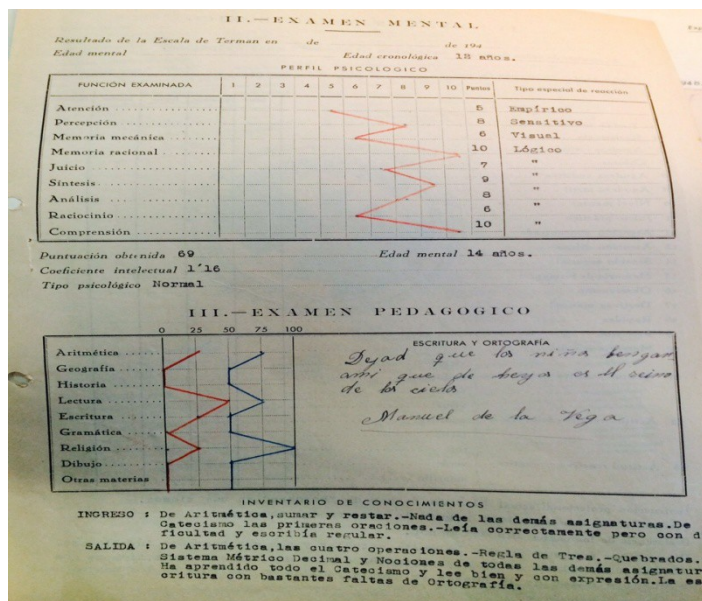 II.—EXAMEN MENTAL
Resultado de la Escala de Terman en de de 194
Edad mental Edad cronológica 12 años.
PERFIL PSICOLOGICO
FUNCIÓN EXAMINADA 1 2 3 4 5 6 7 8 9 10 Puntos Tipo especial de reacción
Atención 5 Empírico
Percepción 8 Sensitivo
Memoria mecánica 6 Visual
Memoria racional 10 Lógico
Juicio 7 "
Síntesis 9 "
Análisis 8 "
Raciocinio 6 "
Comprensión 10 "
Puntuación obtenida 69 Edad mental 14 años.
Coeficiente intelectual 1'16
Tipo psicológico Normal
III.—EXAMEN PEDAGOGICO
0 25 50 75 100
ESCRITURA Y ORTOGRAFÍA
Aritmética
Geografía
Historia
Lectura
Escritura
Gramática
Religión
Dibujo
Otras materias
Dejad que los niños bengan
ami que de beyos es el reino
de los cielos
Manuel de la Vega
INVENTARIO DE CONOCIMIENTOS
INGRESO : De Aritmética,sumar y restar.-Nada de las demás asignaturas.De
Catecismo las primeras oraciones.-Leía correctamente pero con d
ficultad y escribía regular.
SALIDA : De Aritmética,las cuatro operaciones.-Regla de Tres.-Quebrados.
Sistema Métrico Decimal y Nociones de todas las demás asignatur
Ha aprendido todo el Catecismo y lee bien y con expresión.La es
critura con bastantes faltas de Ortografía.